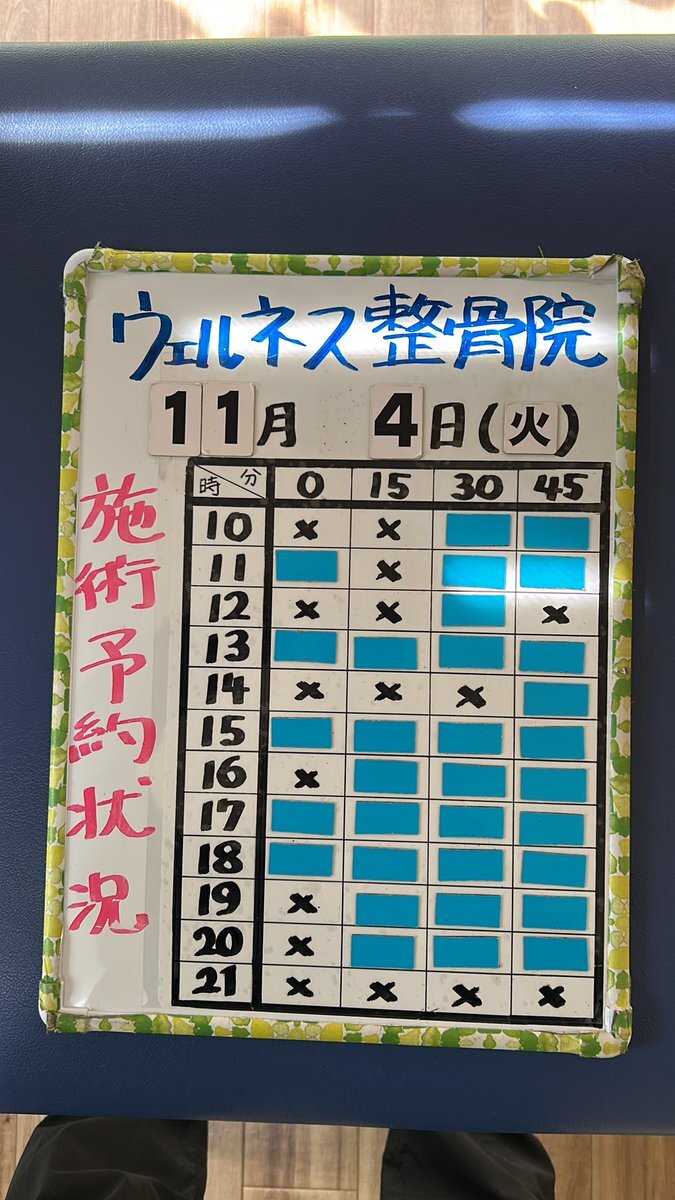 ウェルネス整骨院
11月 4日(火)
施術予約状況
時 分 0 15 30 45
10 × ×
11 ×
12 × × ×
13
14 × × ×
15
16 ×
17
18
19 ×
20 ×
21 × × × ×